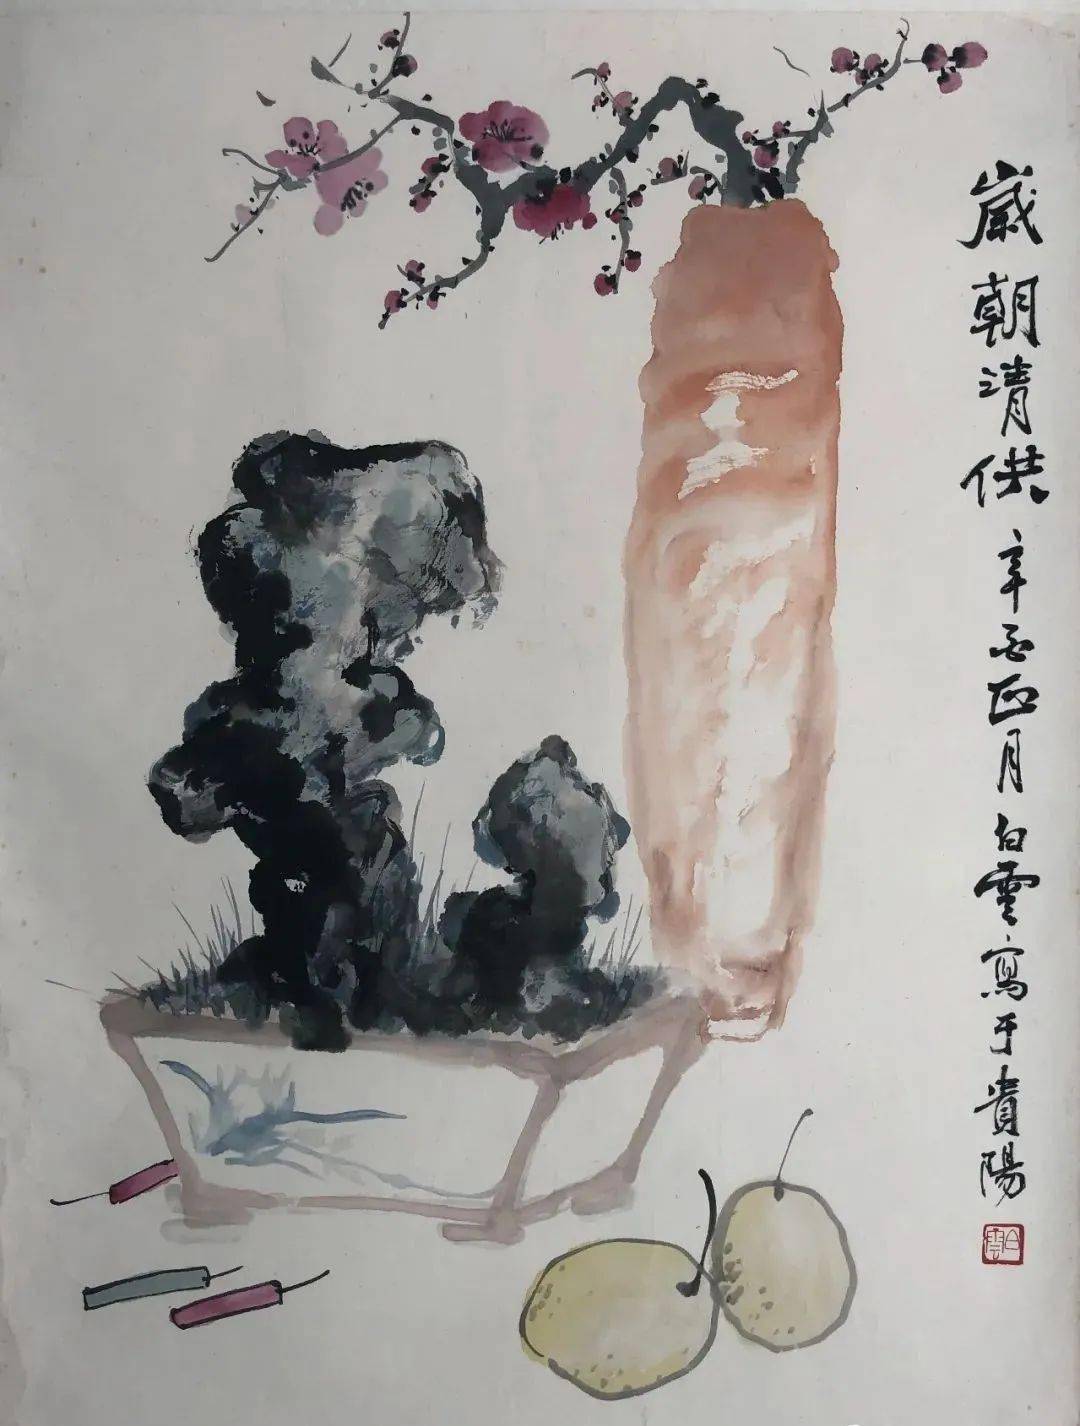 歲朝清供 辛酉正月白雲寫于貴陽
白雲